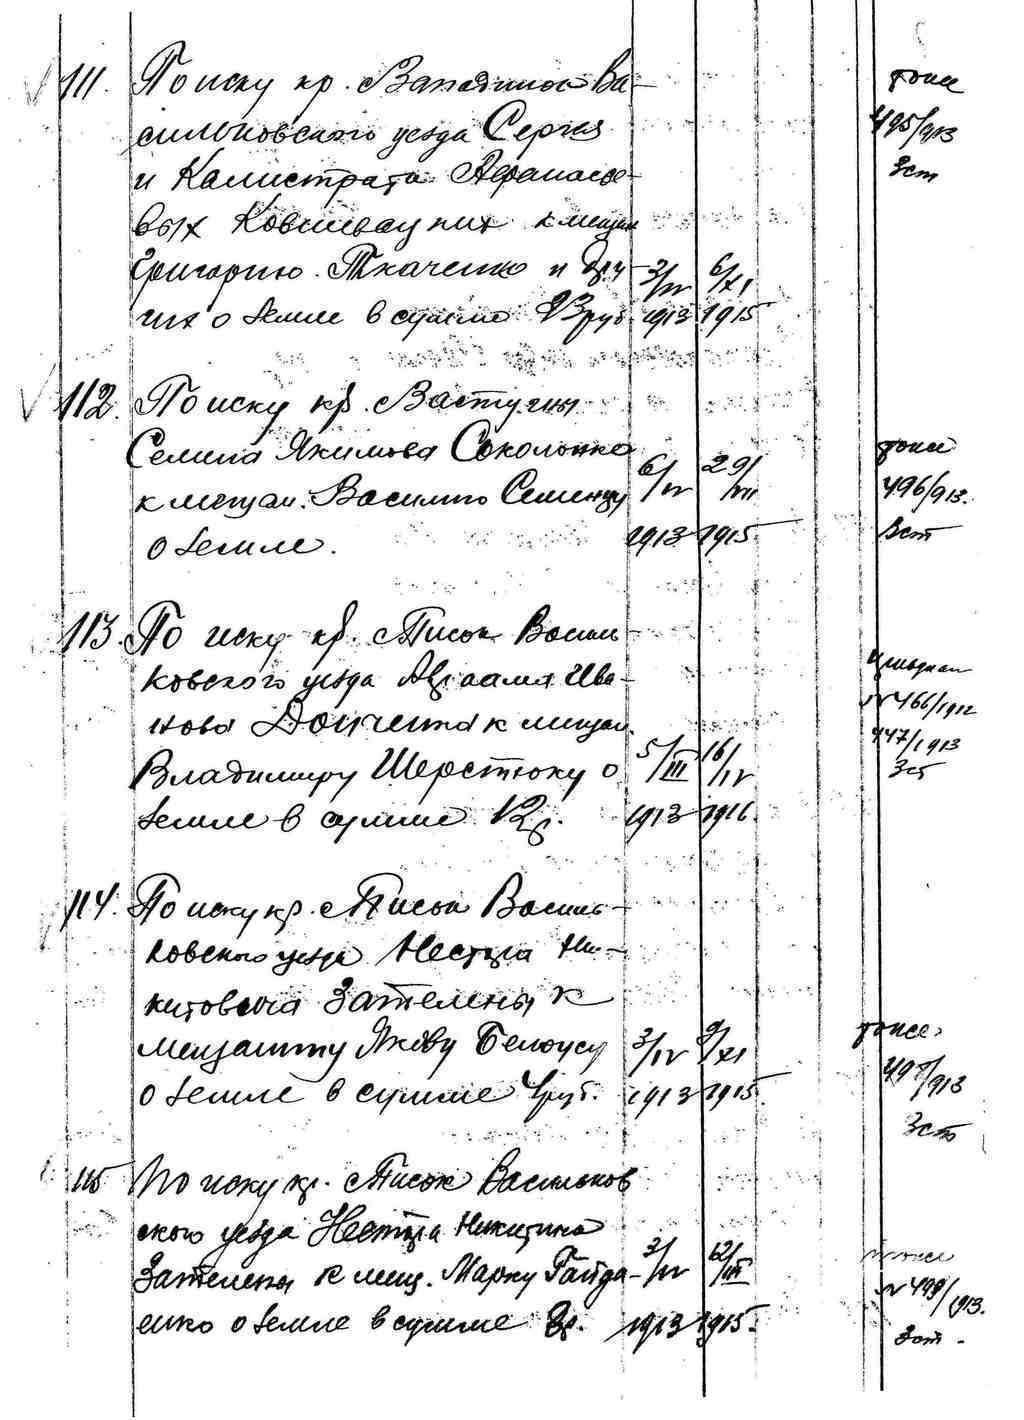 111. По иску кр. Западинок Ва-
сильковского уезда Сергея
и Калистрата Афанасье-
вых Ковшевацких к мещан
Григорию Ткаченко и дру-
гих о земле в сумме руб.
3/IV 1913
6/XI 1915
тоже
495/913
3 ст
112. По иску кр. Застугны
Семена Якимова Соколенко
к мещан. Василию Семенцу
о земле.
6/IV 1913
29/VII 1915
тоже
496/913.
3 ст
113. По иску кр. Писок Василь-
ковского уезда Авраама Ива-
нова Донченка к мещан.
Владимиру Шерстюку о
земле в сумме 12 р.
5/III 1913
16/IV 1916.
№ 466/1912
447/1913
3 ст
114. По иску кр. Писок Василь-
ковского уезда Нестора Ни-
китовича Зателены к
мещанину Якову Белоусу
о земле в сумме 4 руб.
3/IV 1913
9/XI 1915
тоже
497/913
3 ст
115 По иску кр. Писок Васильков
ского уезда Нестора Никитина
Зателены к мещ. Марку Гайда-
енко о земле в сумме р.
3/IV 1913
12/III 1915.
тоже
№ 499/913.
3 ст.